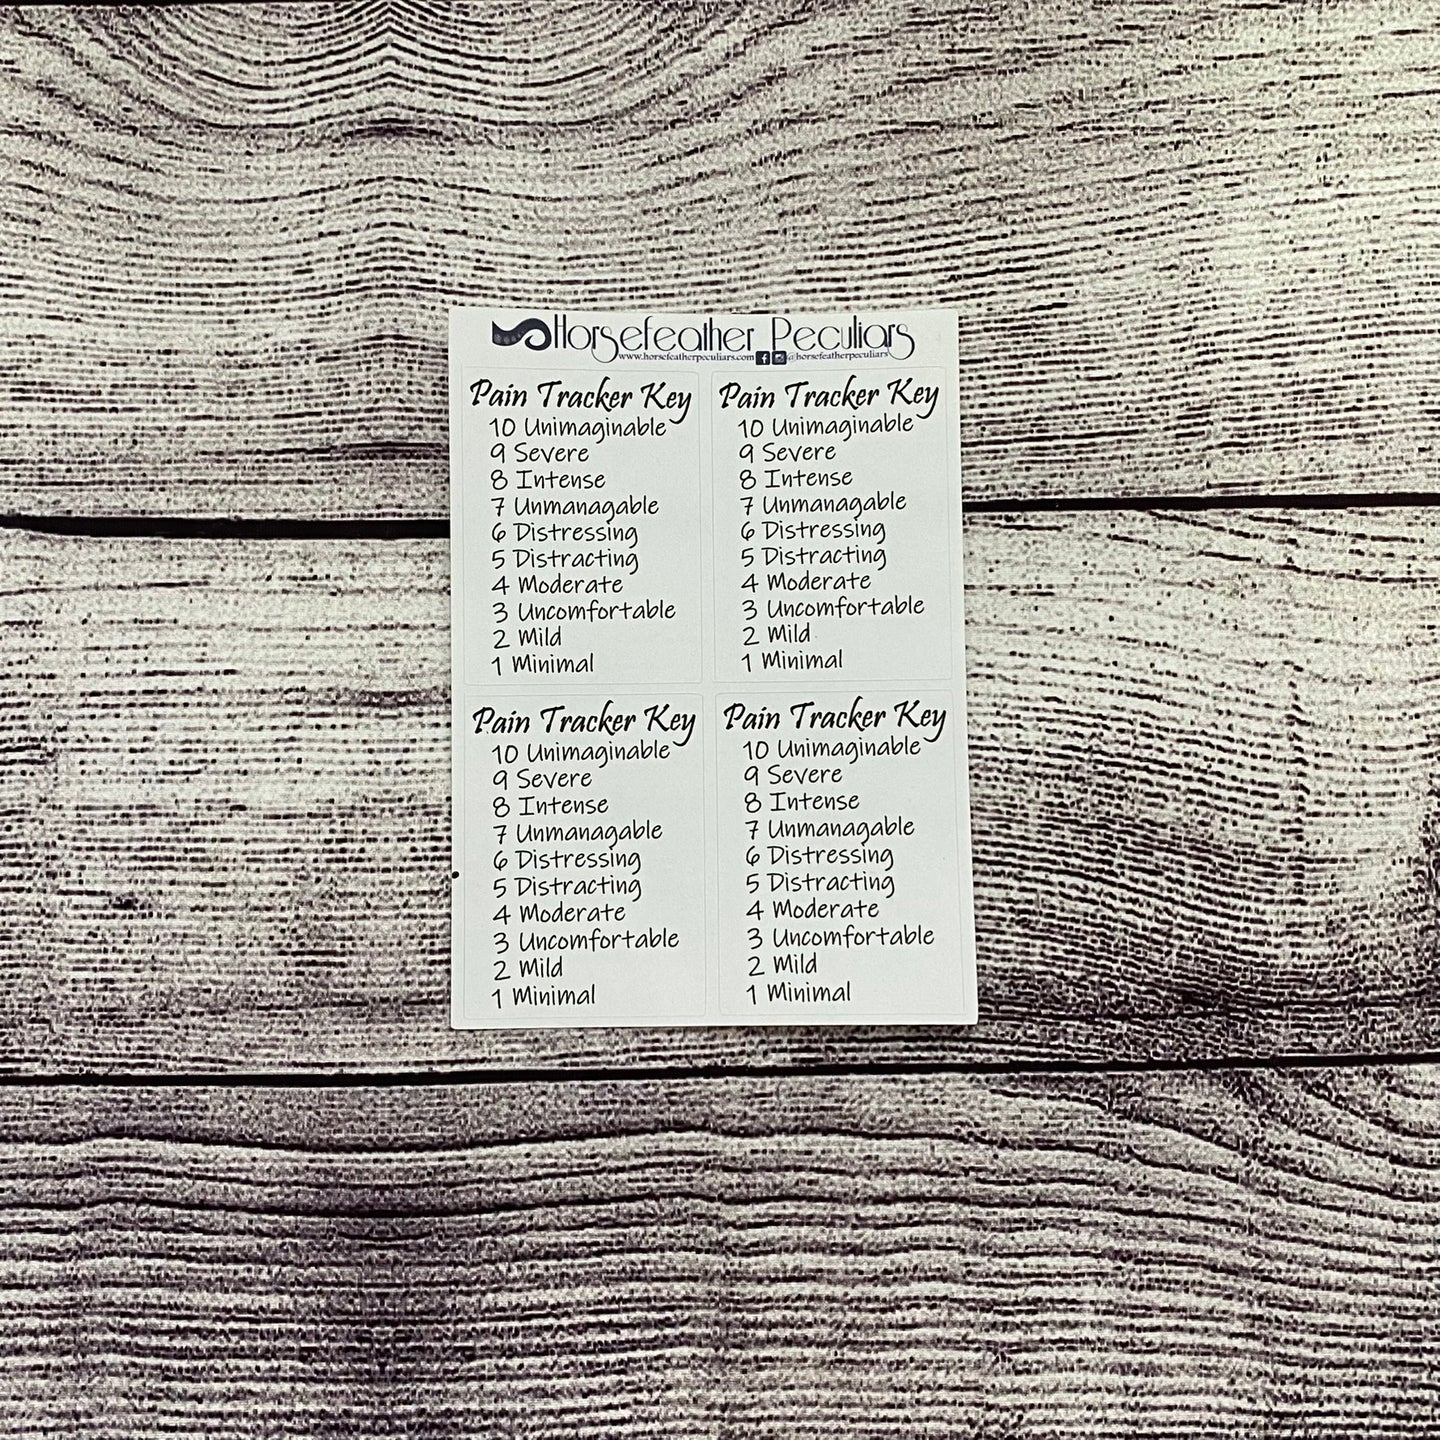 Horsefeather Peculiars
www.horsefeatherpeculiars.com @horsefeatherpeculiars
Pain Tracker Key
10 Unimaginable
9 Severe
8 Intense
7 Unmanagable
6 Distressing
5 Distracting
4 Moderate
3 Uncomfortable
2 Mild
1 Minimal
Pain Tracker Key
10 Unimaginable
9 Severe
8 Intense
7 Unmanagable
6 Distressing
5 Distracting
4 Moderate
3 Uncomfortable
2 Mild
1 Minimal
Pain Tracker Key
10 Unimaginable
9 Severe
8 Intense
7 Unmanagable
6 Distressing
5 Distracting
4 Moderate
3 Uncomfortable
2 Mild
1 Minimal
Pain Tracker Key
10 Unimaginable
9 Severe
8 Intense
7 Unmanagable
6 Distressing
5 Distracting
4 Moderate
3 Uncomfortable
2 Mild
1 Minimal